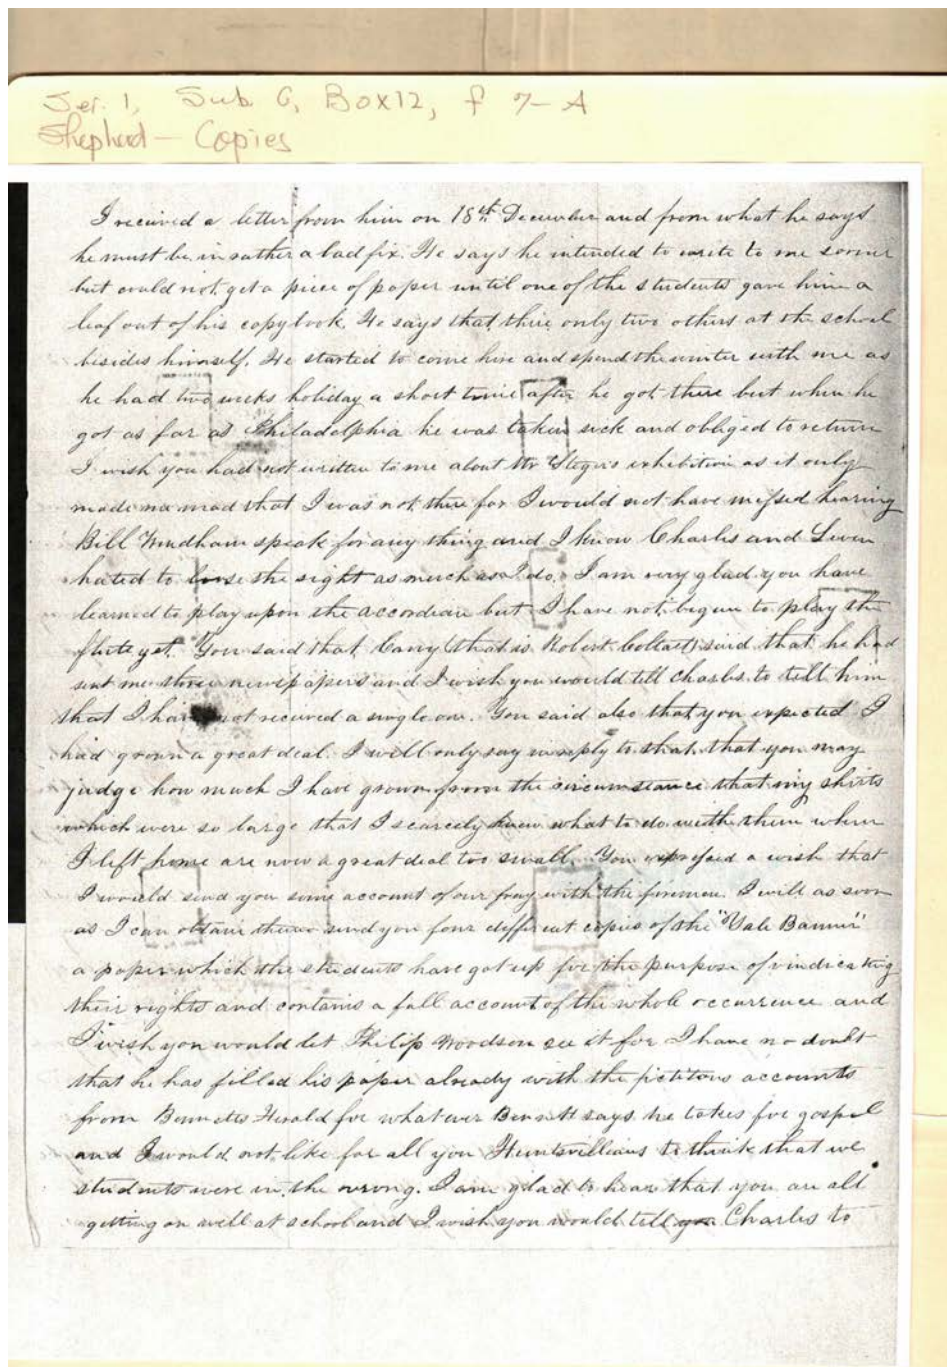 Ser. 1, Sub G, Box 12, f 7-A
Shepherd - Copies
I received a letter from him on 18th December and from what he says
he must be in rather a bad fix. He says he intended to write to me sooner
but could not get a piece of paper until one of the students gave him a
leaf out of his copybook, He says that their only two others at the school
besides himself. He started to come here and spend the winter with me as
he had two weeks holiday a short time after he got there but when he
got as far as Philadelphia he was taken sick and obliged to return
I wish you had not written to me about Mr Steger's exhibition as it only
made me mad that I was not there for I would not have missed hearing
Bill Windham speak for any thing and I know Charles and Leven
hated to loose the sight as much as I do. I am very glad you have
learned to play upon the accordean but I have not begun to play the
flute yet. You said that (that is Robert said that he had
sent me three newspapers and I wish you would tell charles to tell him
that I have not received a single one. You said also that you expected I
had grown a great deal. I will only say in reply to that that you may
judge how much I have grown from the circumstance that my shirts
which were so large that I scarcely knew what to do with them when
I left home are now a great deal too small. You expressed a wish that
I would send you some account of our fray with the firemen. I will as soon
as I can obtain them send you four different copies of the "Yale Banner"
a paper which the students have got up for the purpose of vindicating
their rights and contains a full account of the whole occurrence and
I wish you would let Philip Woodson see it for I have no doubt
that he has filled his paper already with the fictitous accounts
from Bennetts Herald for whatever Bennett says he takes for gospel
and I would not like for all you Huntsvillians to think that we
students were in the wrong. I am glad to hear that you are all
getting on well at school and I wish you would tell Charles to